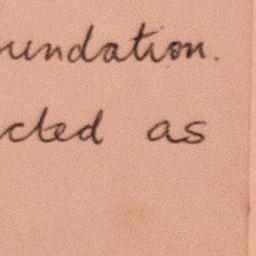 undation.
cted as